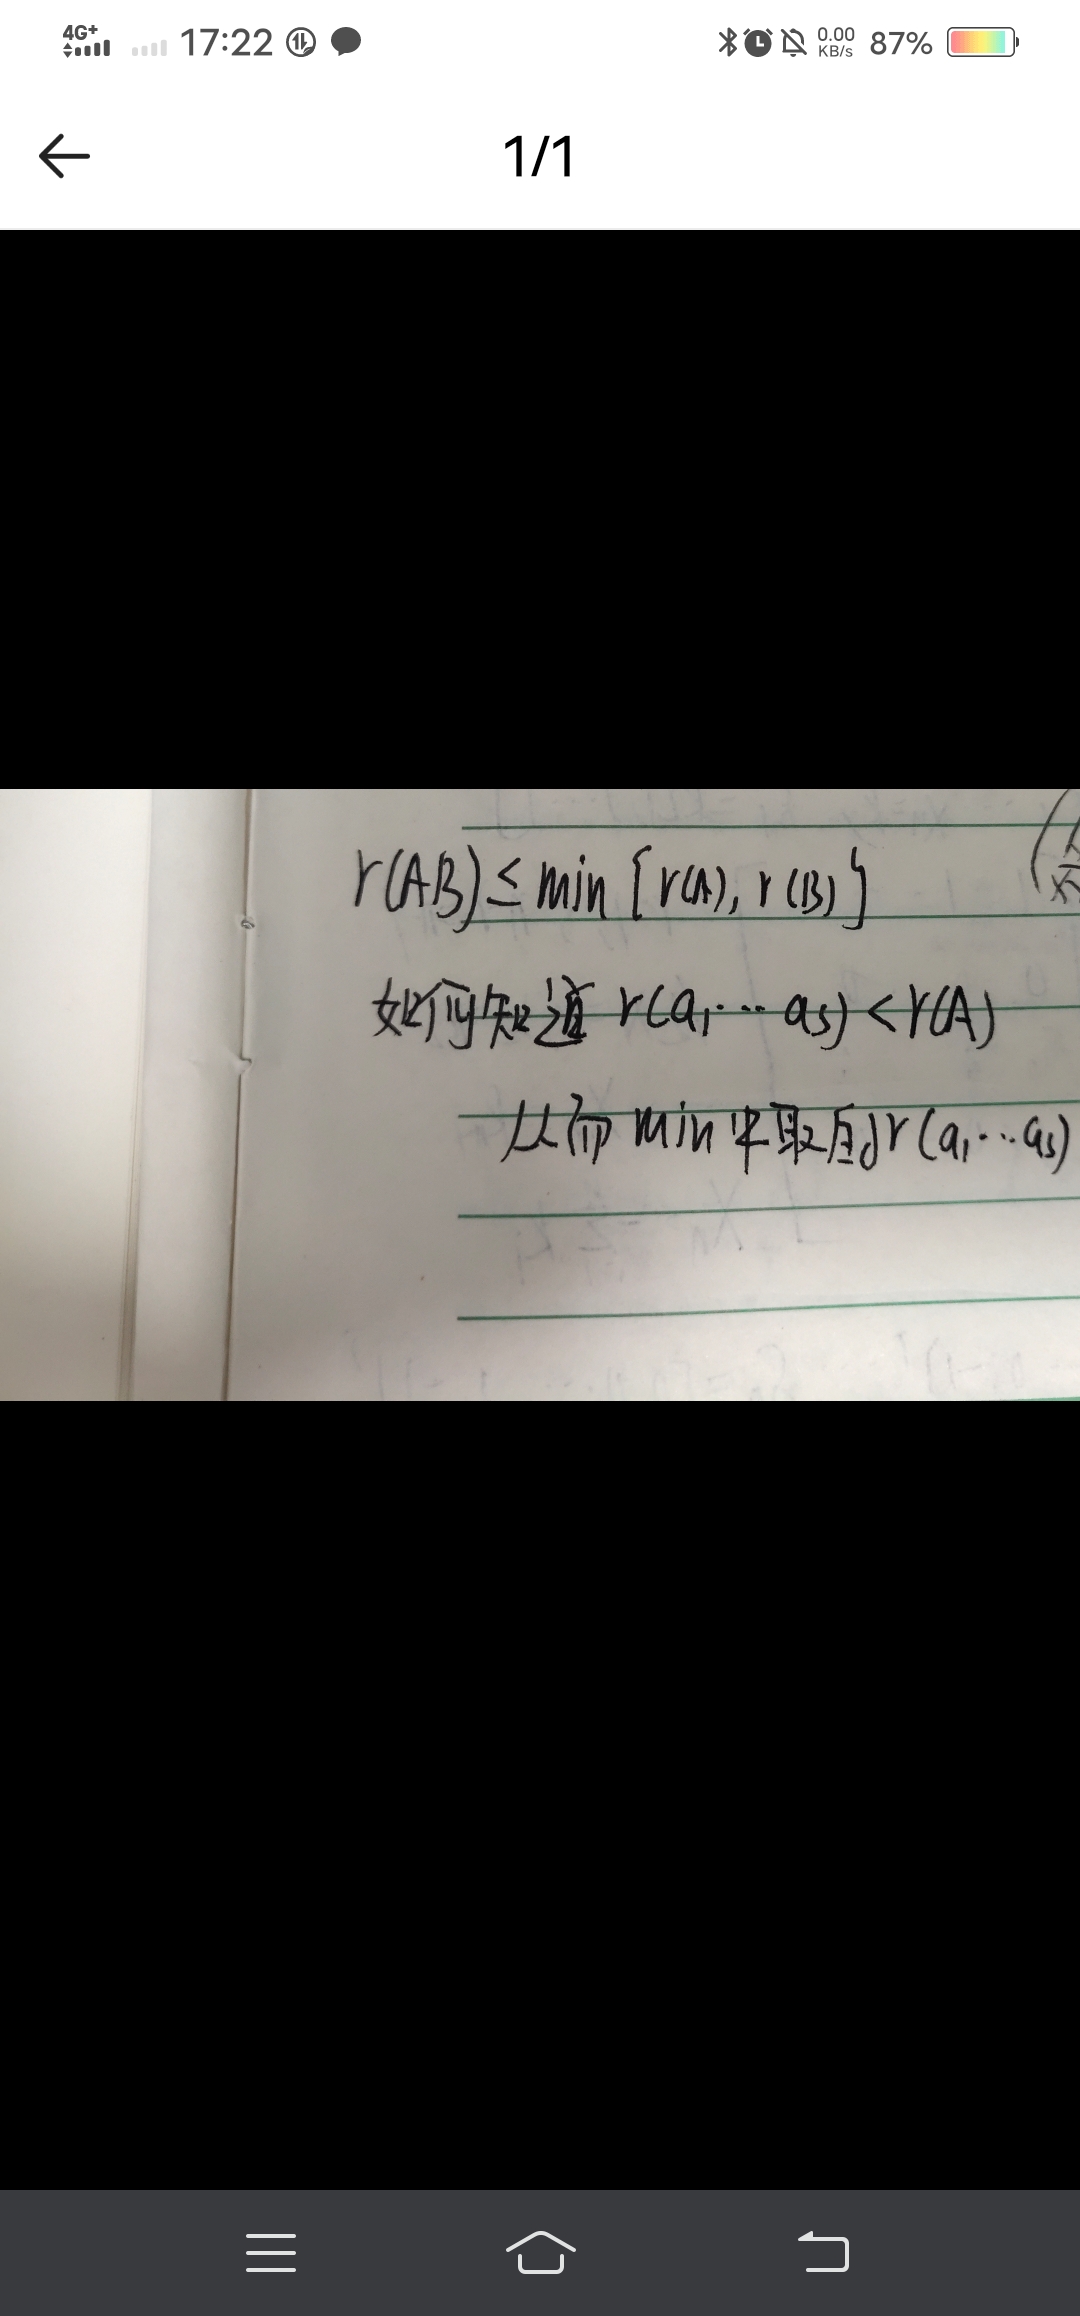 4G+
17:22
0.00
KB/s
87%
1/1
r(AB)≤min{r(A),r(B)}
如何知道 r(a₁…as)<r(A)
从而 min 中取自r(a₁…as)